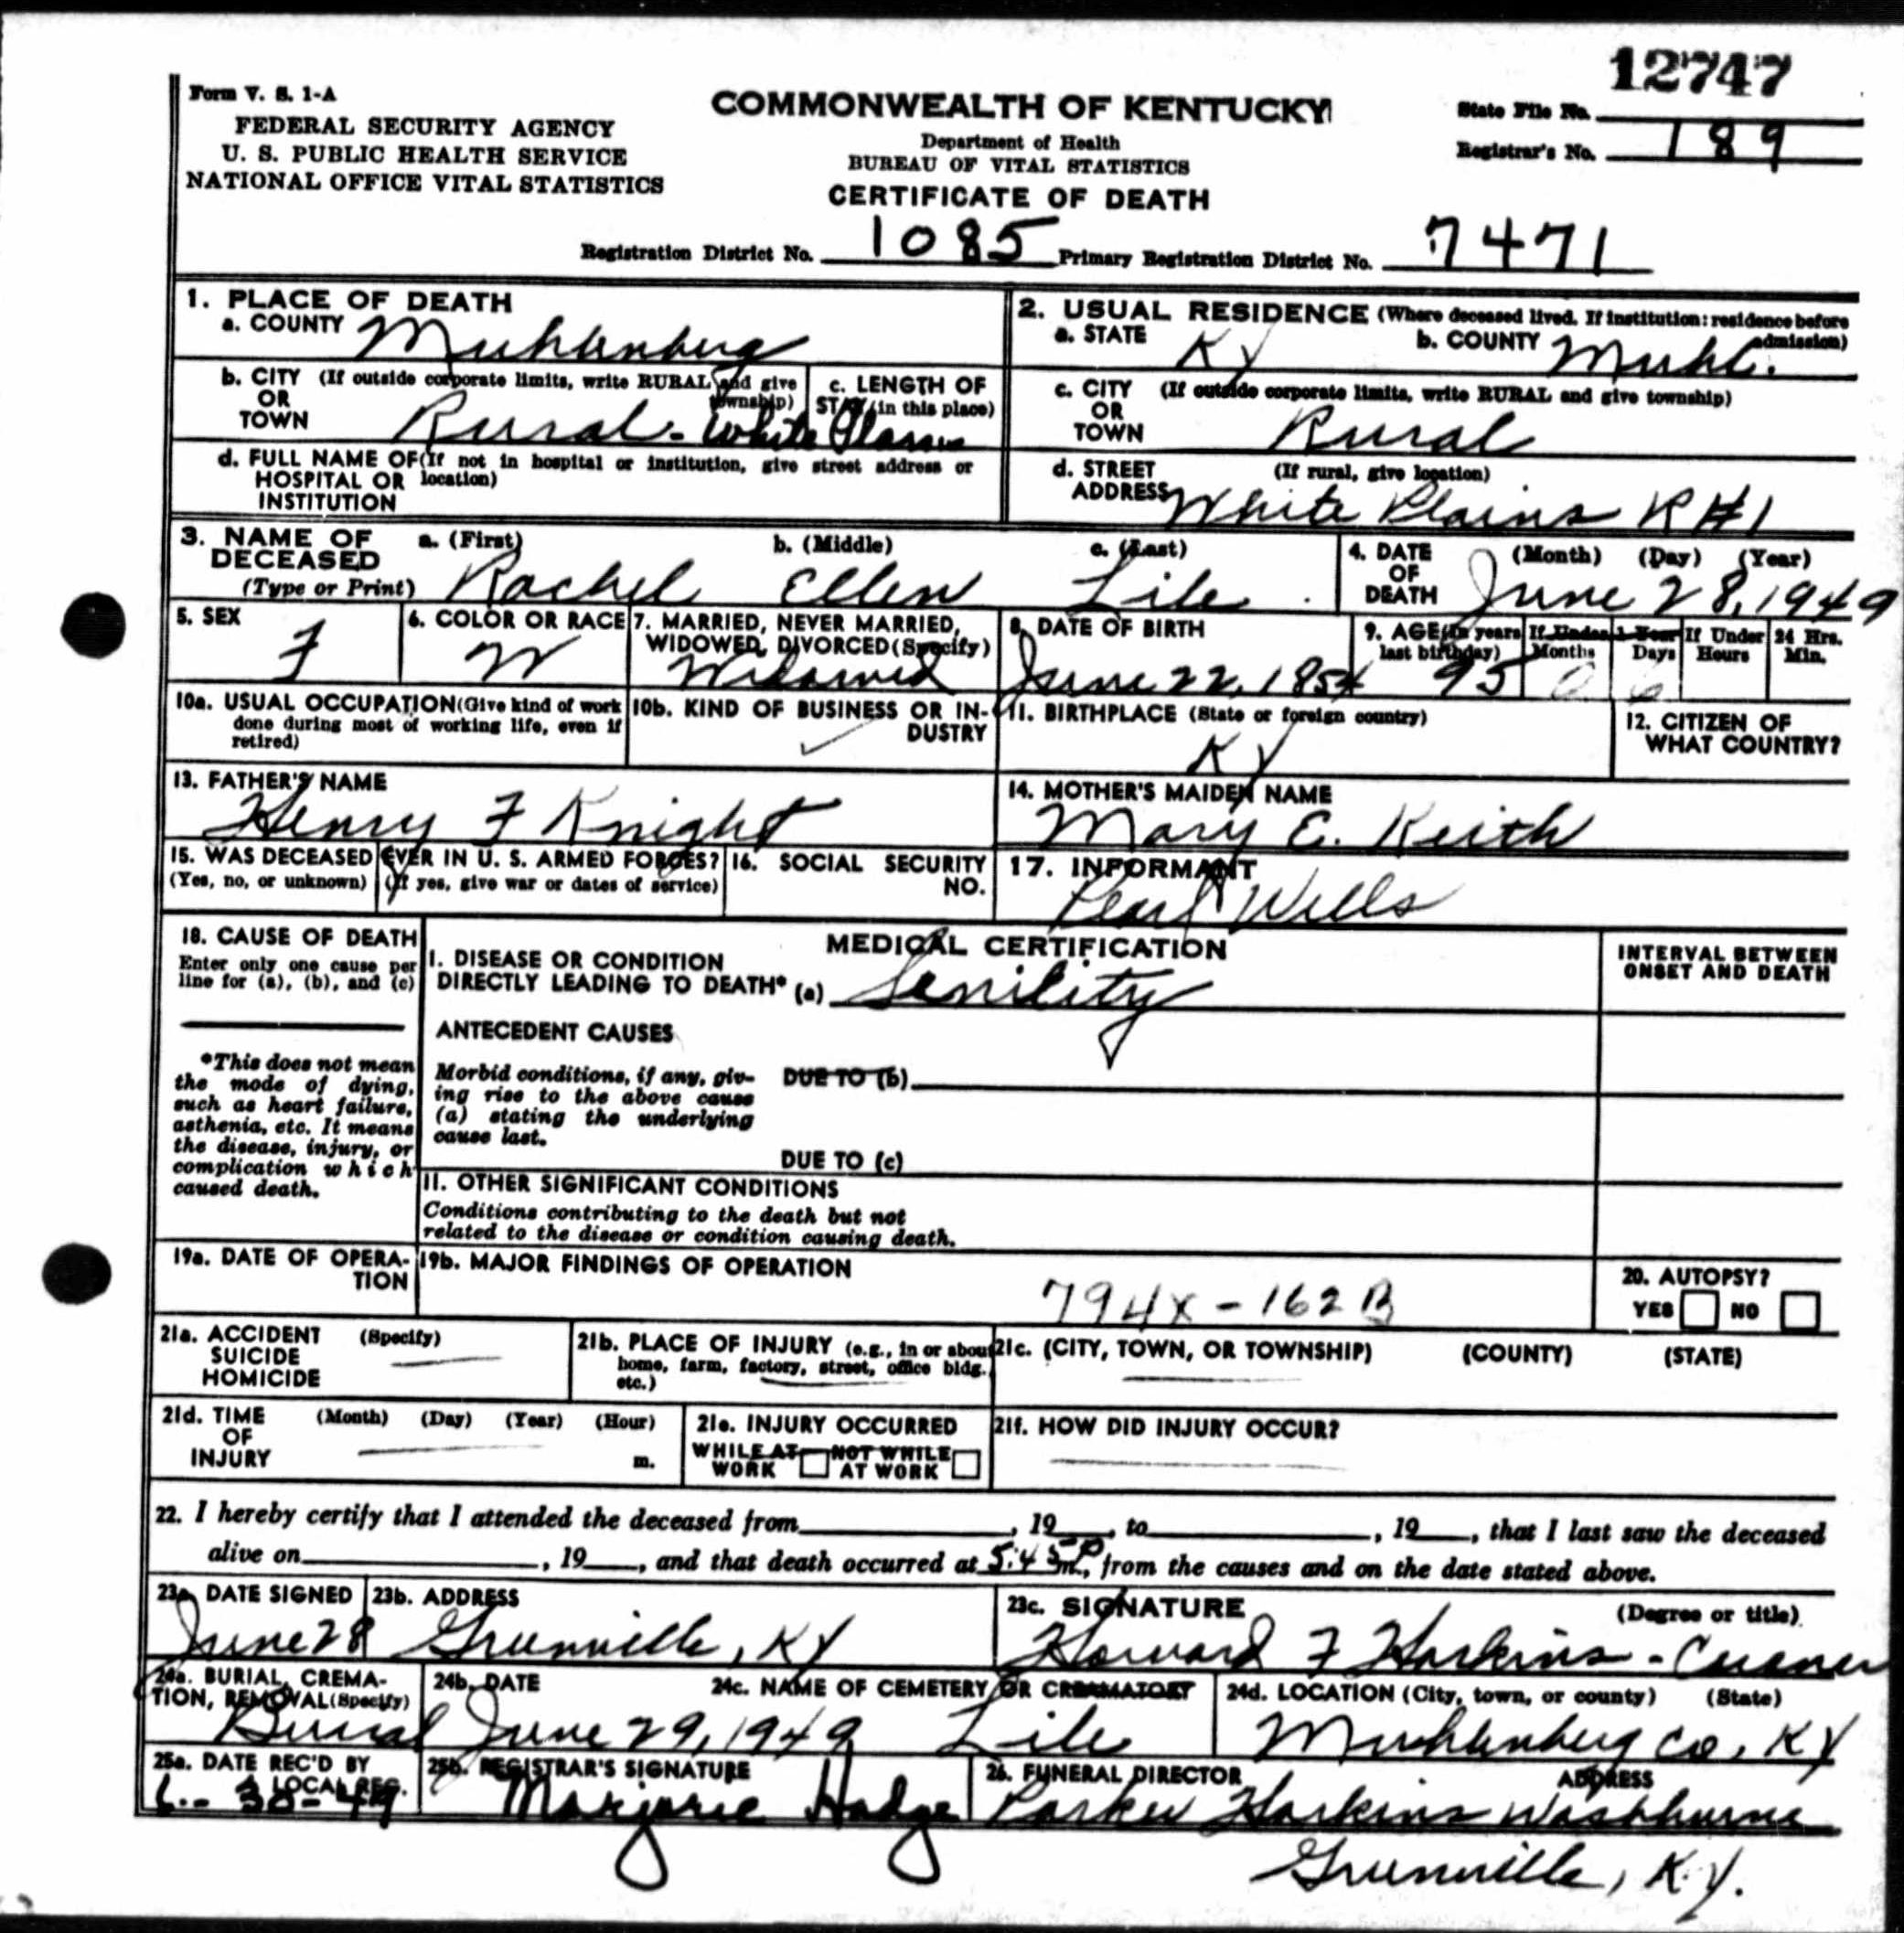 12747
Form V. S. 1-A
FEDERAL SECURITY AGENCY
U. S. PUBLIC HEALTH SERVICE
NATIONAL OFFICE VITAL STATISTICS
COMMONWEALTH OF KENTUCKY
Department of Health
BUREAU OF VITAL STATISTICS
CERTIFICATE OF DEATH
State File No.
Registrar's No. 189
Registration District No. 1085 Primary Registration District No. 7471
1. PLACE OF DEATH
a. COUNTY Muhlenberg
2. USUAL RESIDENCE (Where deceased lived. If institution: residence before admission)
a. STATE Ky b. COUNTY Muhl.
b. CITY OR TOWN (If outside corporate limits, write RURAL and give township) Rural - White Plains
c. LENGTH OF STAY (in this place)
c. CITY OR TOWN (If outside corporate limits, write RURAL and give township) Rural
d. FULL NAME OF HOSPITAL OR INSTITUTION (If not in hospital or institution, give street address or location)
d. STREET ADDRESS (If rural, give location) White Plains R #1
3. NAME OF DECEASED (Type or Print) a. (First) Rachel b. (Middle) Ellen c. (Last) Lile
4. DATE OF DEATH (Month) (Day) (Year) June 28, 1949
5. SEX F
6. COLOR OR RACE W
7. MARRIED, NEVER MARRIED, WIDOWED, DIVORCED (Specify) Widowed
8. DATE OF BIRTH June 22, 1854
9. AGE (In years last birthday) 95 If Under 1 Year Months 0 Days 6 If Under 24 Hrs. Hours Min.
10a. USUAL OCCUPATION (Give kind of work done during most of working life, even if retired)
10b. KIND OF BUSINESS OR INDUSTRY
11. BIRTHPLACE (State or foreign country) Ky
12. CITIZEN OF WHAT COUNTRY?
13. FATHER'S NAME Henry F Knight
14. MOTHER'S MAIDEN NAME Mary E. Keith
15. WAS DECEASED EVER IN U. S. ARMED FORCES? (Yes, no, or unknown) (If yes, give war or dates of service)
16. SOCIAL SECURITY NO.
17. INFORMANT Pearl Wells
18. CAUSE OF DEATH
Enter only one cause per line for (a), (b), and (c)
*This does not mean the mode of dying, such as heart failure, asthenia, etc. It means the disease, injury, or complication which caused death.
MEDICAL CERTIFICATION
INTERVAL BETWEEN ONSET AND DEATH
I. DISEASE OR CONDITION DIRECTLY LEADING TO DEATH* (a) Senility
ANTECEDENT CAUSES
Morbid conditions, if any, giving rise to the above cause (a) stating the underlying cause last.
DUE TO (b)
DUE TO (c)
II. OTHER SIGNIFICANT CONDITIONS
Conditions contributing to the death but not related to the disease or condition causing death.
19a. DATE OF OPERATION
19b. MAJOR FINDINGS OF OPERATION
794X - 162B
20. AUTOPSY? YES NO
21a. ACCIDENT SUICIDE HOMICIDE (Specify)
21b. PLACE OF INJURY (e.g., in or about home, farm, factory, street, office bldg. etc.)
21c. (CITY, TOWN, OR TOWNSHIP) (COUNTY) (STATE)
21d. TIME OF INJURY (Month) (Day) (Year) (Hour) m.
21e. INJURY OCCURRED WHILE AT WORK NOT WHILE AT WORK
21f. HOW DID INJURY OCCUR?
22. I hereby certify that I attended the deceased from , 19 , to , 19 , that I last saw the deceased
alive on , 19 , and that death occurred at 5:45 P m., from the causes and on the date stated above.
23a. DATE SIGNED June 28
23b. ADDRESS Greenville, Ky
23c. SIGNATURE (Degree or title) Howard F Harkins - Coroner
24a. BURIAL, CREMATION, REMOVAL (Specify) Burial
24b. DATE June 29, 1949
24c. NAME OF CEMETERY OR CREAMATORY Lile
24d. LOCATION (City, town, or county) (State) Muhlenberg Co, Ky
25a. DATE REC'D BY LOCAL REG. 6-30-49
25b. REGISTRAR'S SIGNATURE Marjorie Hodge
26. FUNERAL DIRECTOR ADDRESS Parker Harkins Washburne
Greenville, Ky.